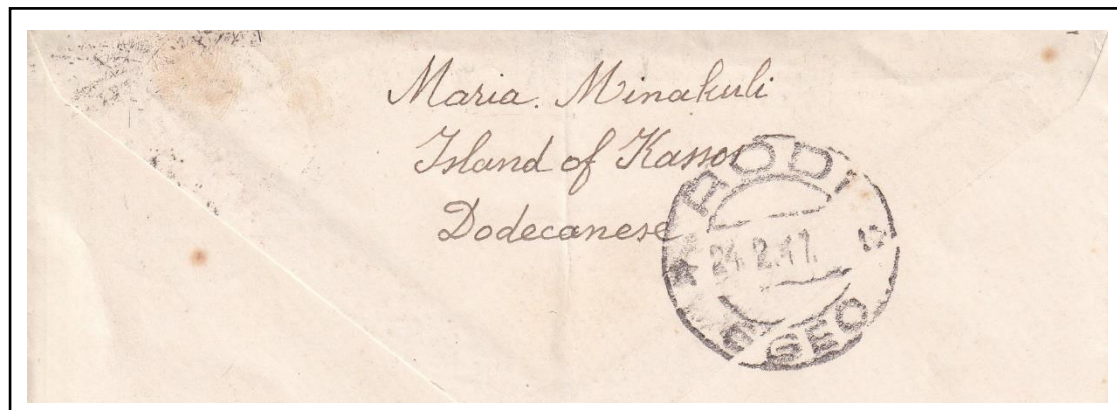 Maria. Minakuli
Island of Kassos
Dodecanese
RODI
24.2.47.
EGEO